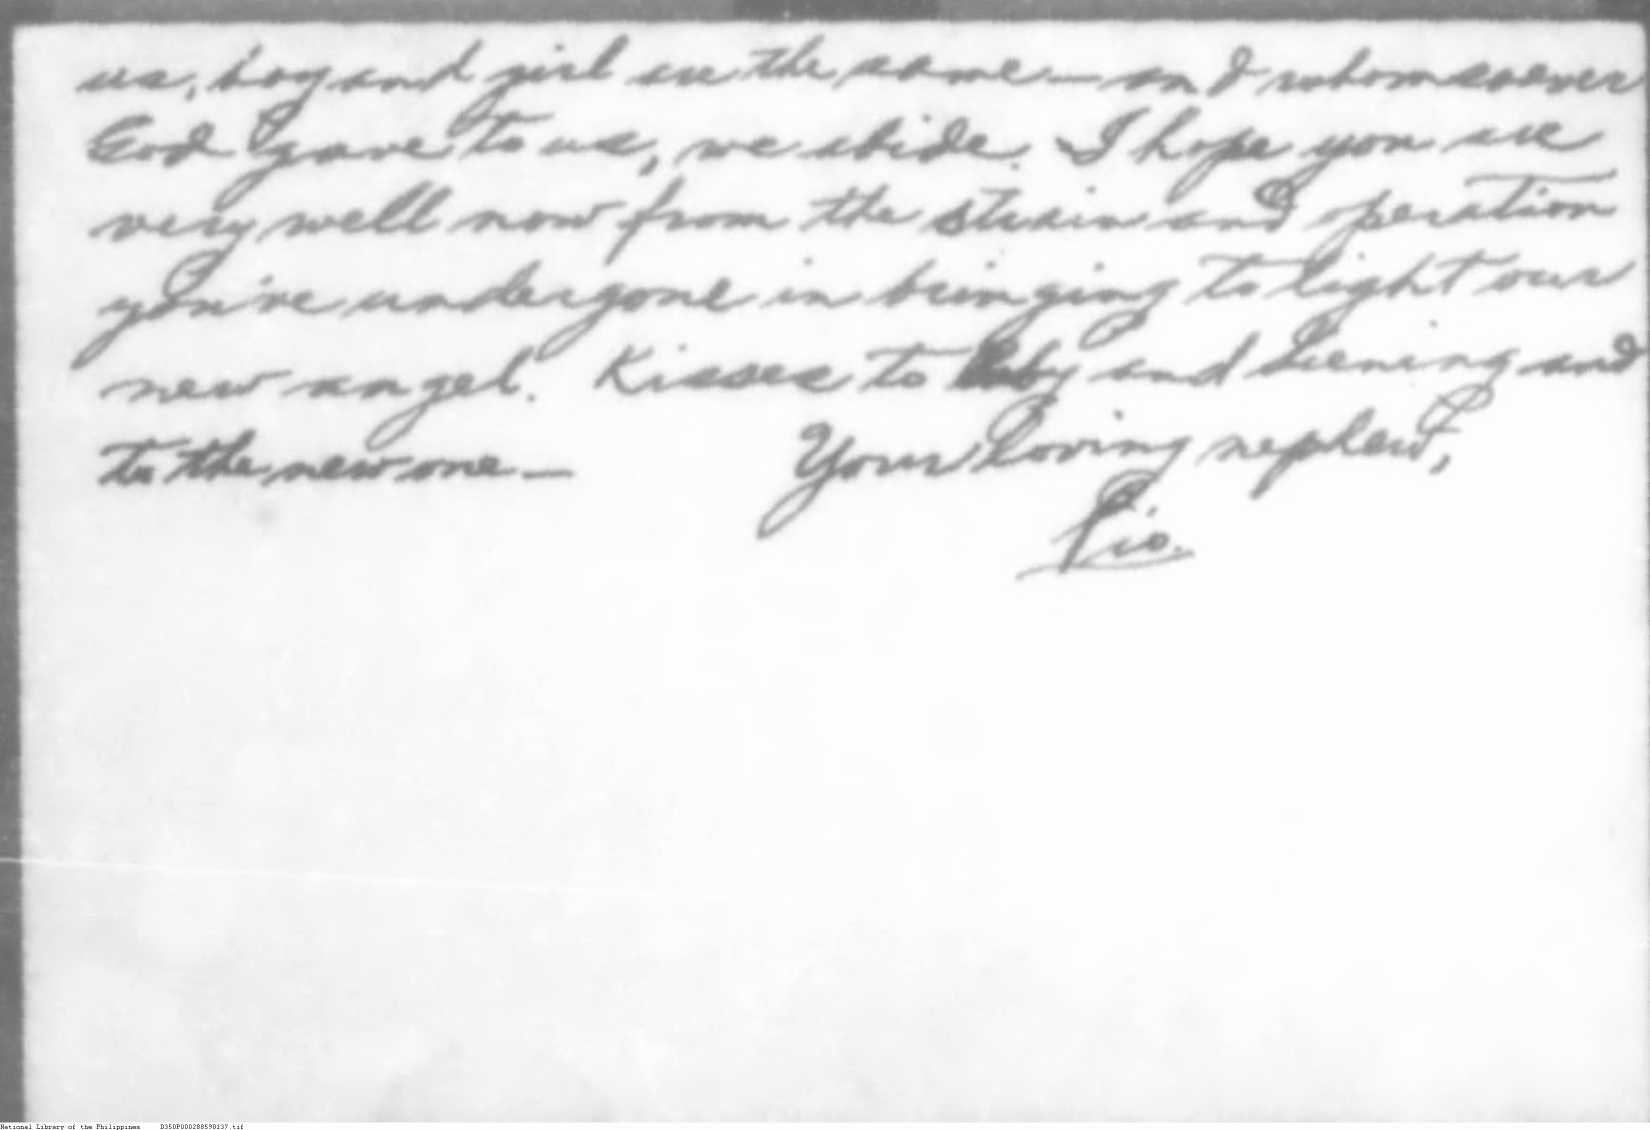 us, boy and girl are the same — and whomsoever
God gave to us, we abide. I hope you are
very well now from the strain and operation
you've undergone in bringing to light our
new angel. Kisses to and and
to the new one — Your loving nephew,
Pio.
National Library of the Philippines D350P000288598137.tif